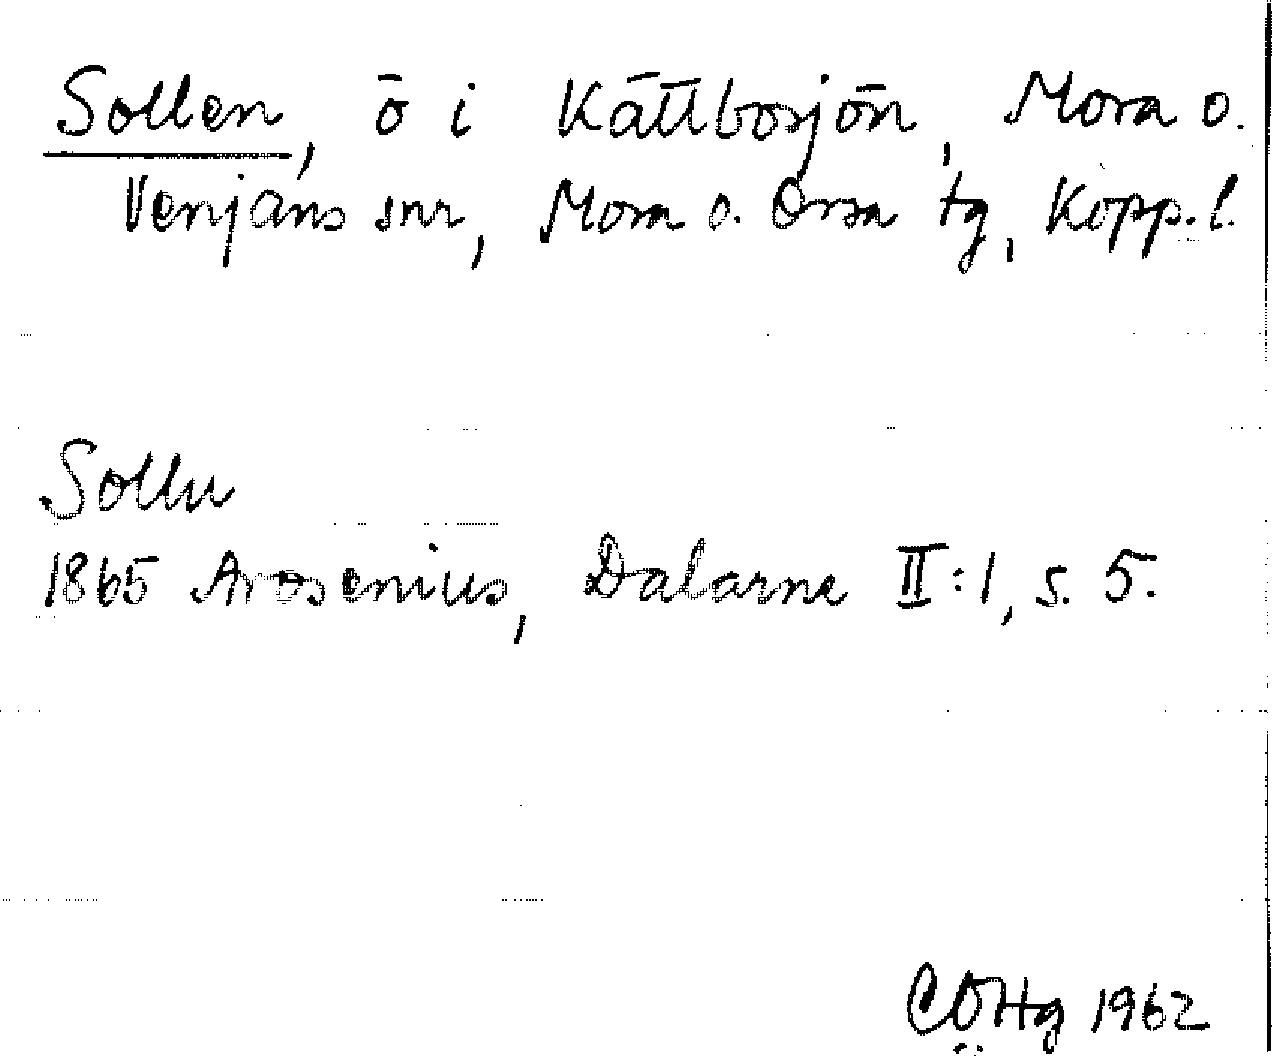 Sollen, ö i Kättbosjön, Mora o.
Venjans snr, Mora o. Orsa tg, Kopp. l.
Sollen
1865 Arosenius, Dalarne II:1, s. 5.
CÖHg 1962